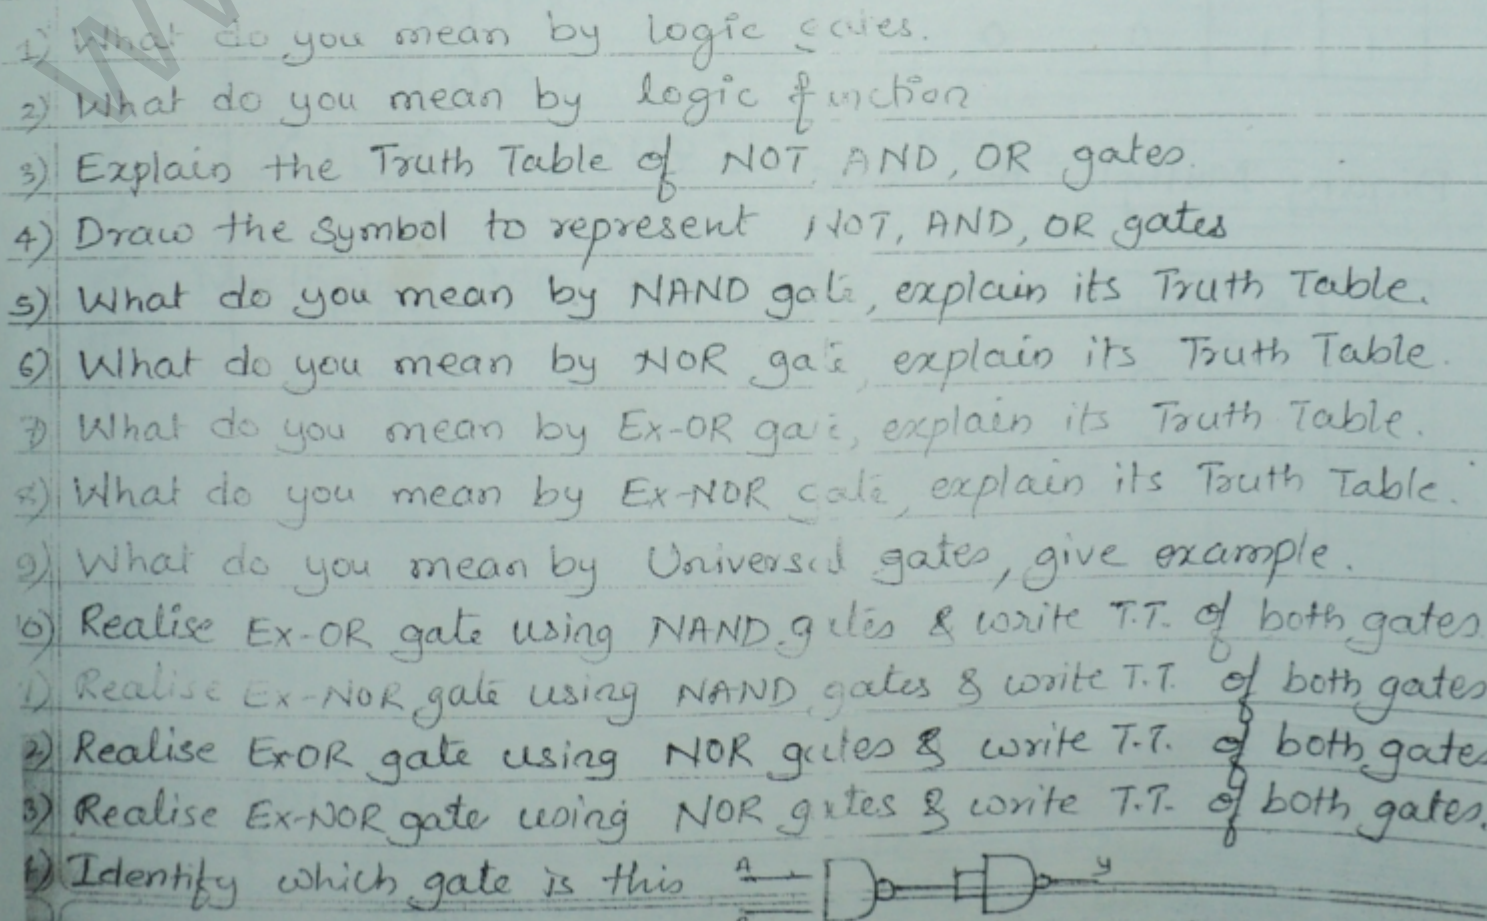 1) What do you mean by logic gates.
2) What do you mean by logic function
3) Explain the Truth Table of NOT AND, OR gates.
4) Draw the Symbol to represent NOT, AND, OR gates
5) What do you mean by NAND gate, explain its Truth Table.
6) What do you mean by NOR gate, explain its Truth Table.
7) What do you mean by Ex-OR gate, explain its Truth Table.
8) What do you mean by Ex-NOR gate, explain its Truth Table.
9) What do you mean by Universal gates, give example.
10) Realise Ex-OR gate using NAND gates & write T.T. of both gates
1) Realise Ex-NOR gate using NAND gates & write T.T. of both gates
2) Realise ExOR gate using NOR gates & write T.T. of both gates
3) Realise Ex-NOR gate using NOR gates & write T.T. of both gates.
Identify which gate is this A y